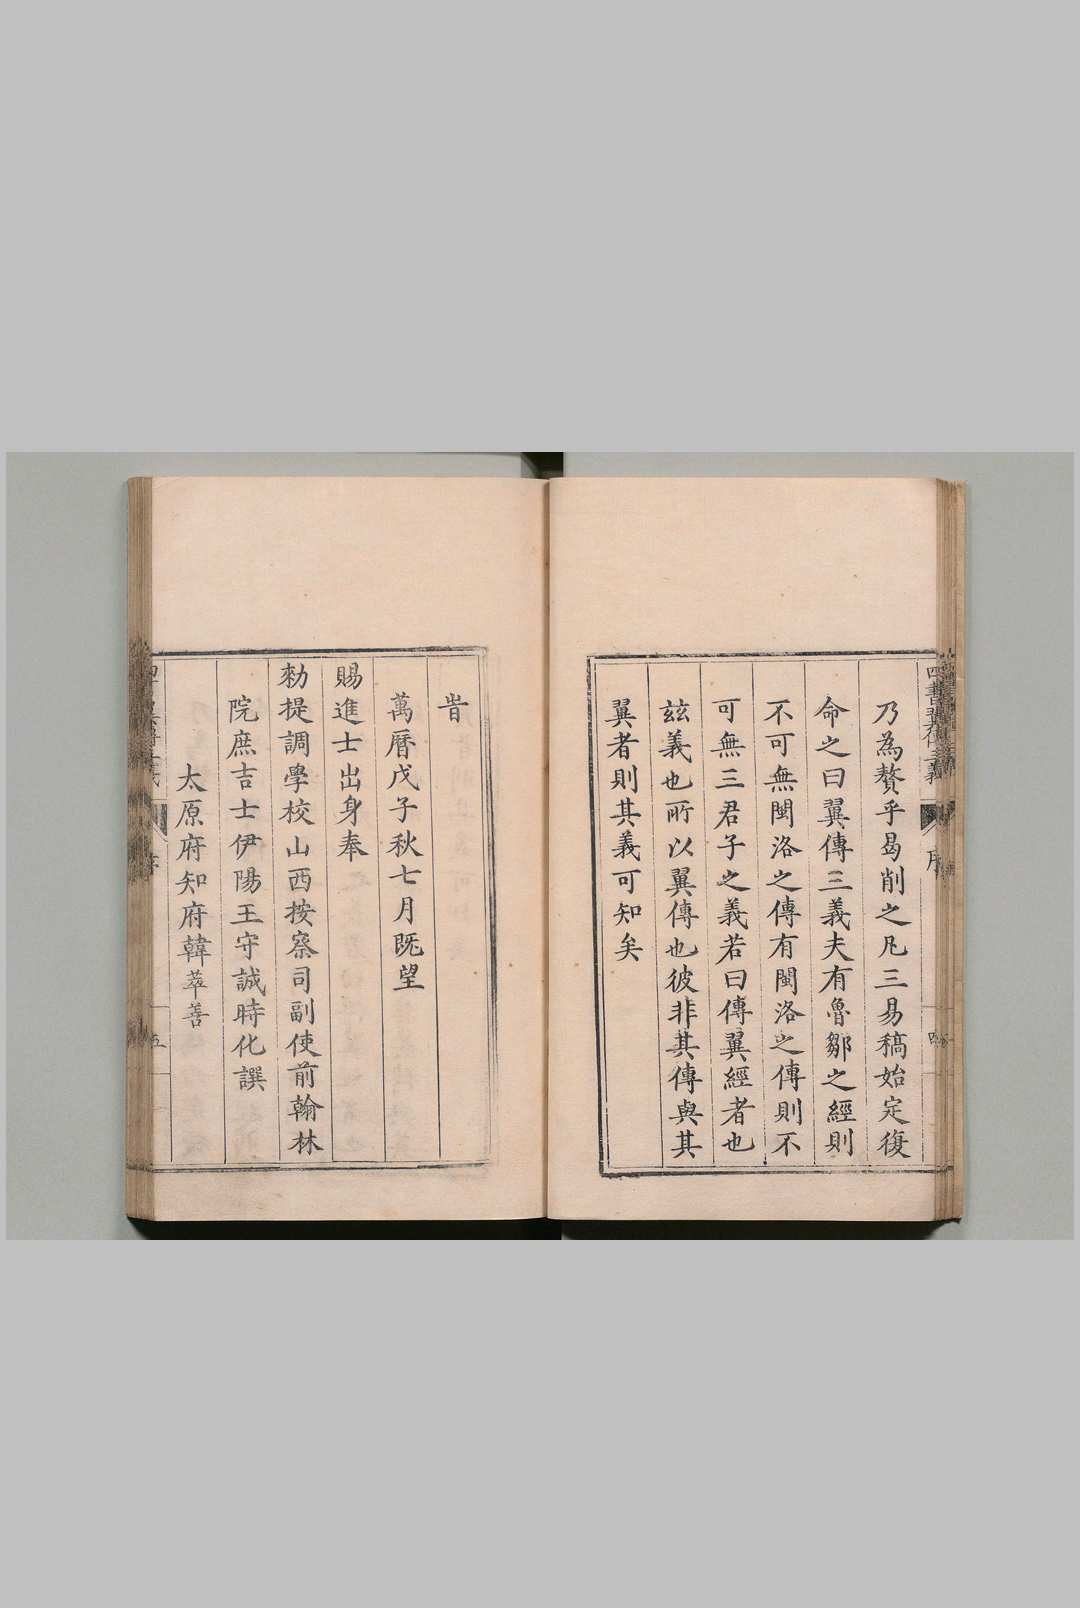 四書翼傳三義
序
四
乃為贅乎曷削之凡三易稿始定復
命之曰翼傳三義夫有魯鄒之經則
不可無閩洛之傳有閩洛之傳則不
可無三君子之義若曰傳翼經者也
玆義也所以翼傳也彼非其傳與其
翼者則其義可知矣
旹
萬曆戊子秋七月既望
賜進士出身奉
勑提調學校山西按察司副使前翰林
院庶吉士伊陽王守誠時化譔
太原府知府韓萃善
序
五